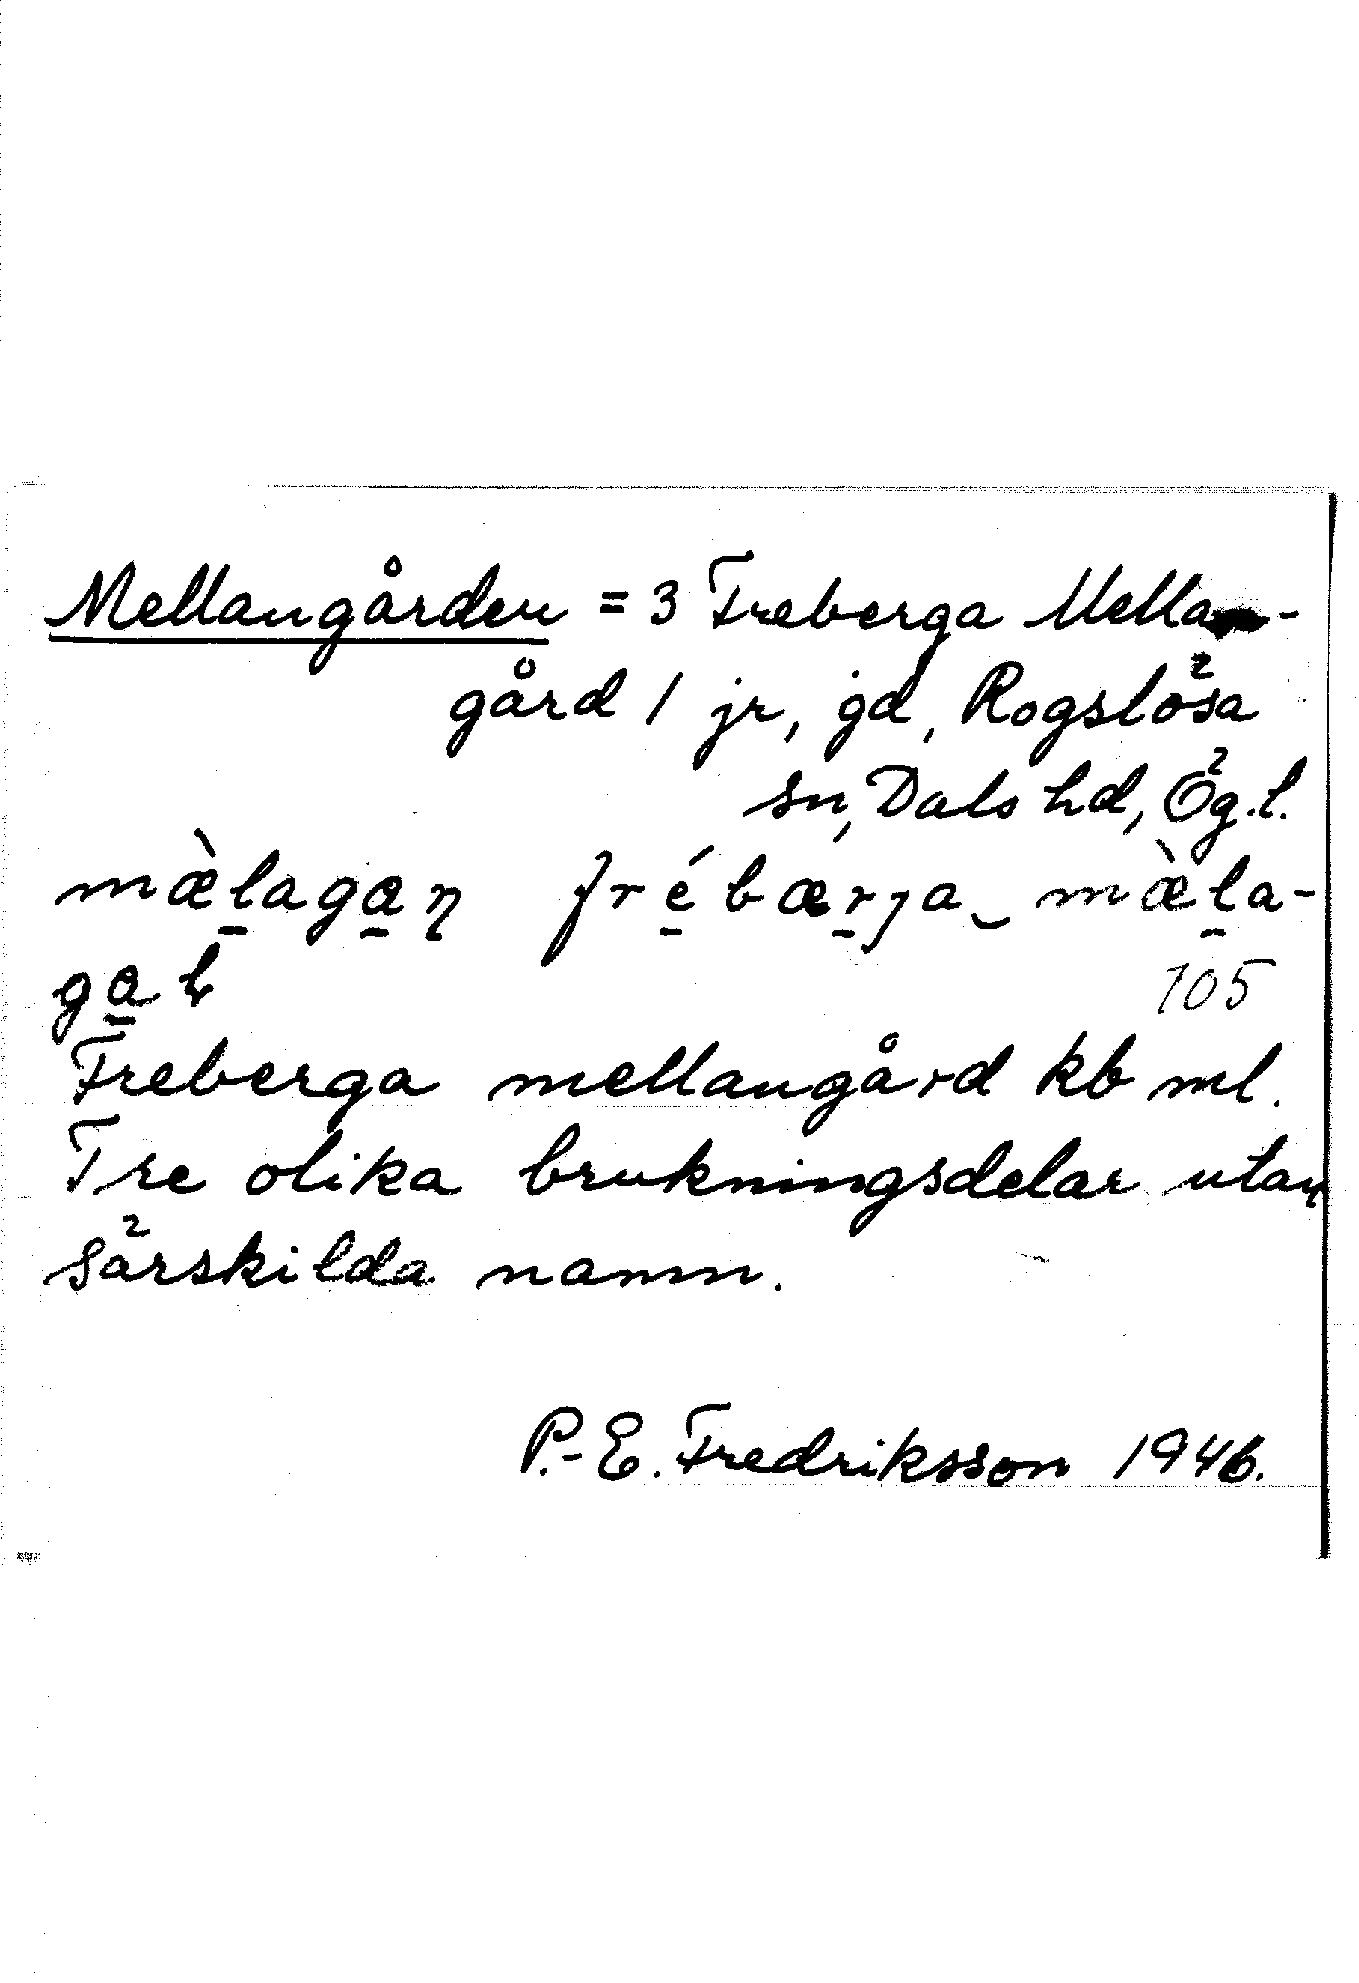 Mellangården = 3 Freberga Mellan-
gård 1 jr, gd, Rogslösa
sn, Dals hd, Ög.l.
mæ̀lagaꞃ frébærȷa mæ̀la-
ga
105
Freberga mellangård kb ml.
Tre olika brukningsdelar utan
särskilda namn.
P.-E. Fredriksson 1946.